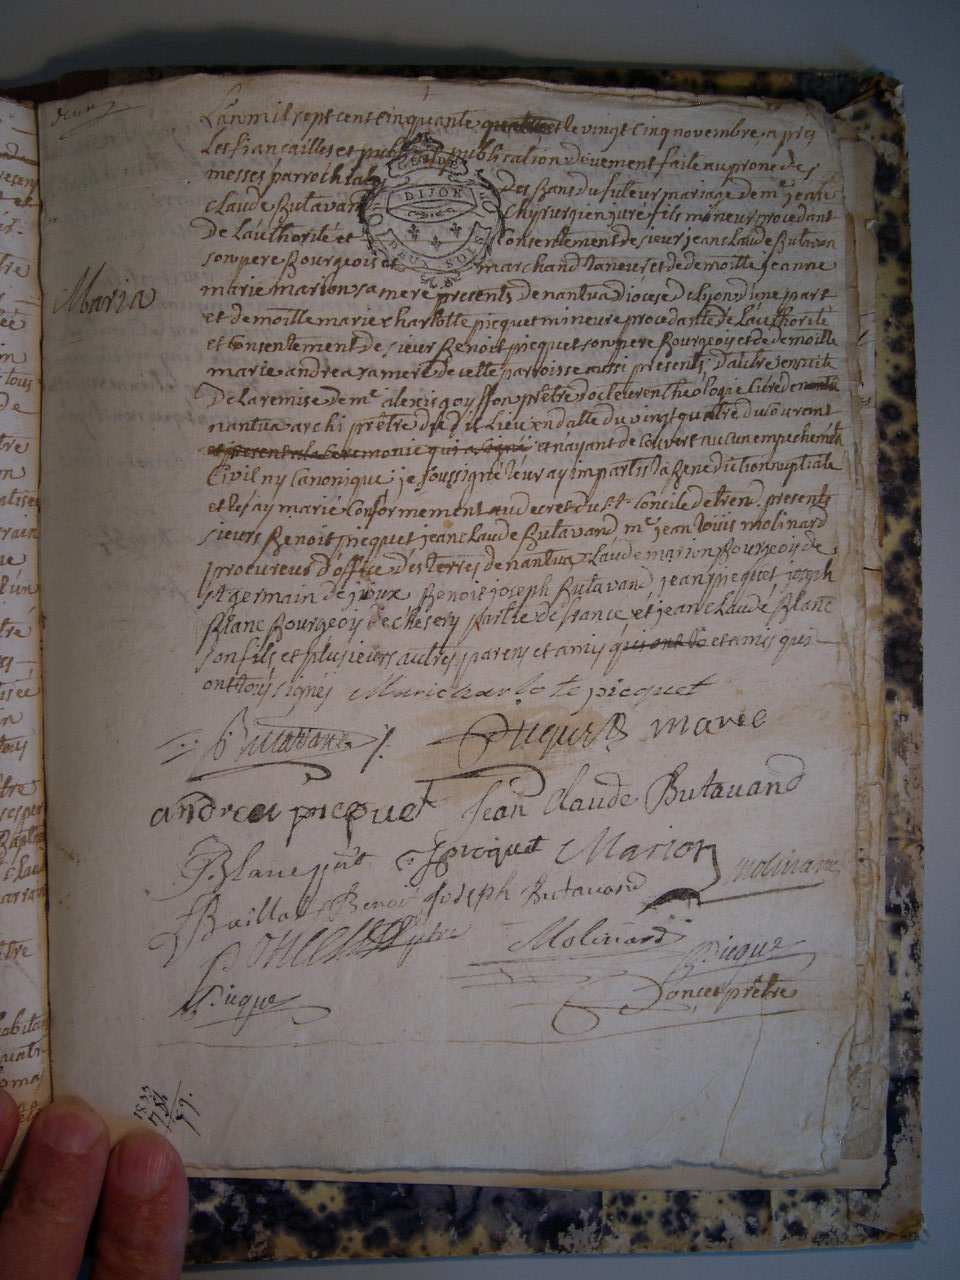 L'an mil sept cent cinquante quattre et le vingt cinq novembre, apres
Les fiancailles et publication devement faite au prone des
messes parroch
DIJON
des Bans du futeur mariage de mr. jean
Claude Butavand
Chyrurgien juré fils mineur procedant
De Lauthorité et
Consentement de sieur jean Claude Butavan
son pere Bourgeois et
marchand taneur et de demoille jeanne
Maria
marie marion sa mere presents de nantua diocese de Lyon d'une part
et demoille marie charlotte picquet mineure procedante de Lauthorité
et Consentement de sieur Benoit picquet son pere Bourgeois et de demoille
marie andrea sa mere de cette parroisse aussi presents d'autre ensuite
De La remise de mr. alexis goyffon prêtre docteur en theologie Curé de
nantua archi prêtre du dit Lieu en datte du vingt quatre du Courant
et present a la Ceremonie qui a signé et n'ayant decouvert aucun empechemt
Civil ny Canonique, je soussigné Leur ay imparti La Benediction nuptiale
et Les ay marié Conformement au decret du St. Concile de trend. presents
sieurs Benoit picquet jean Claude Butavand, mr. jean Louis molinard
procureur d'office des terres de nantua, Claude marion Bourgeois de
st germain de joux Benoit joseph Butavand, jean picquet, joseph
Blanc Bourgeois de Chesery partie de france, et jean Claude Blanc
son fils et plusieurs autres parens et amis qui ont de et amis qui
ont tous signés Marie charlote picquet
Butavand picquet marie
andrea picquet Jean Claude Butavand
P. Blanc J picquet Marion molinard
Baillat Benoit Joseph Butavand
poncet ptre Molinard Picquet
Picquet Poncet prêtre
1833
754
59.